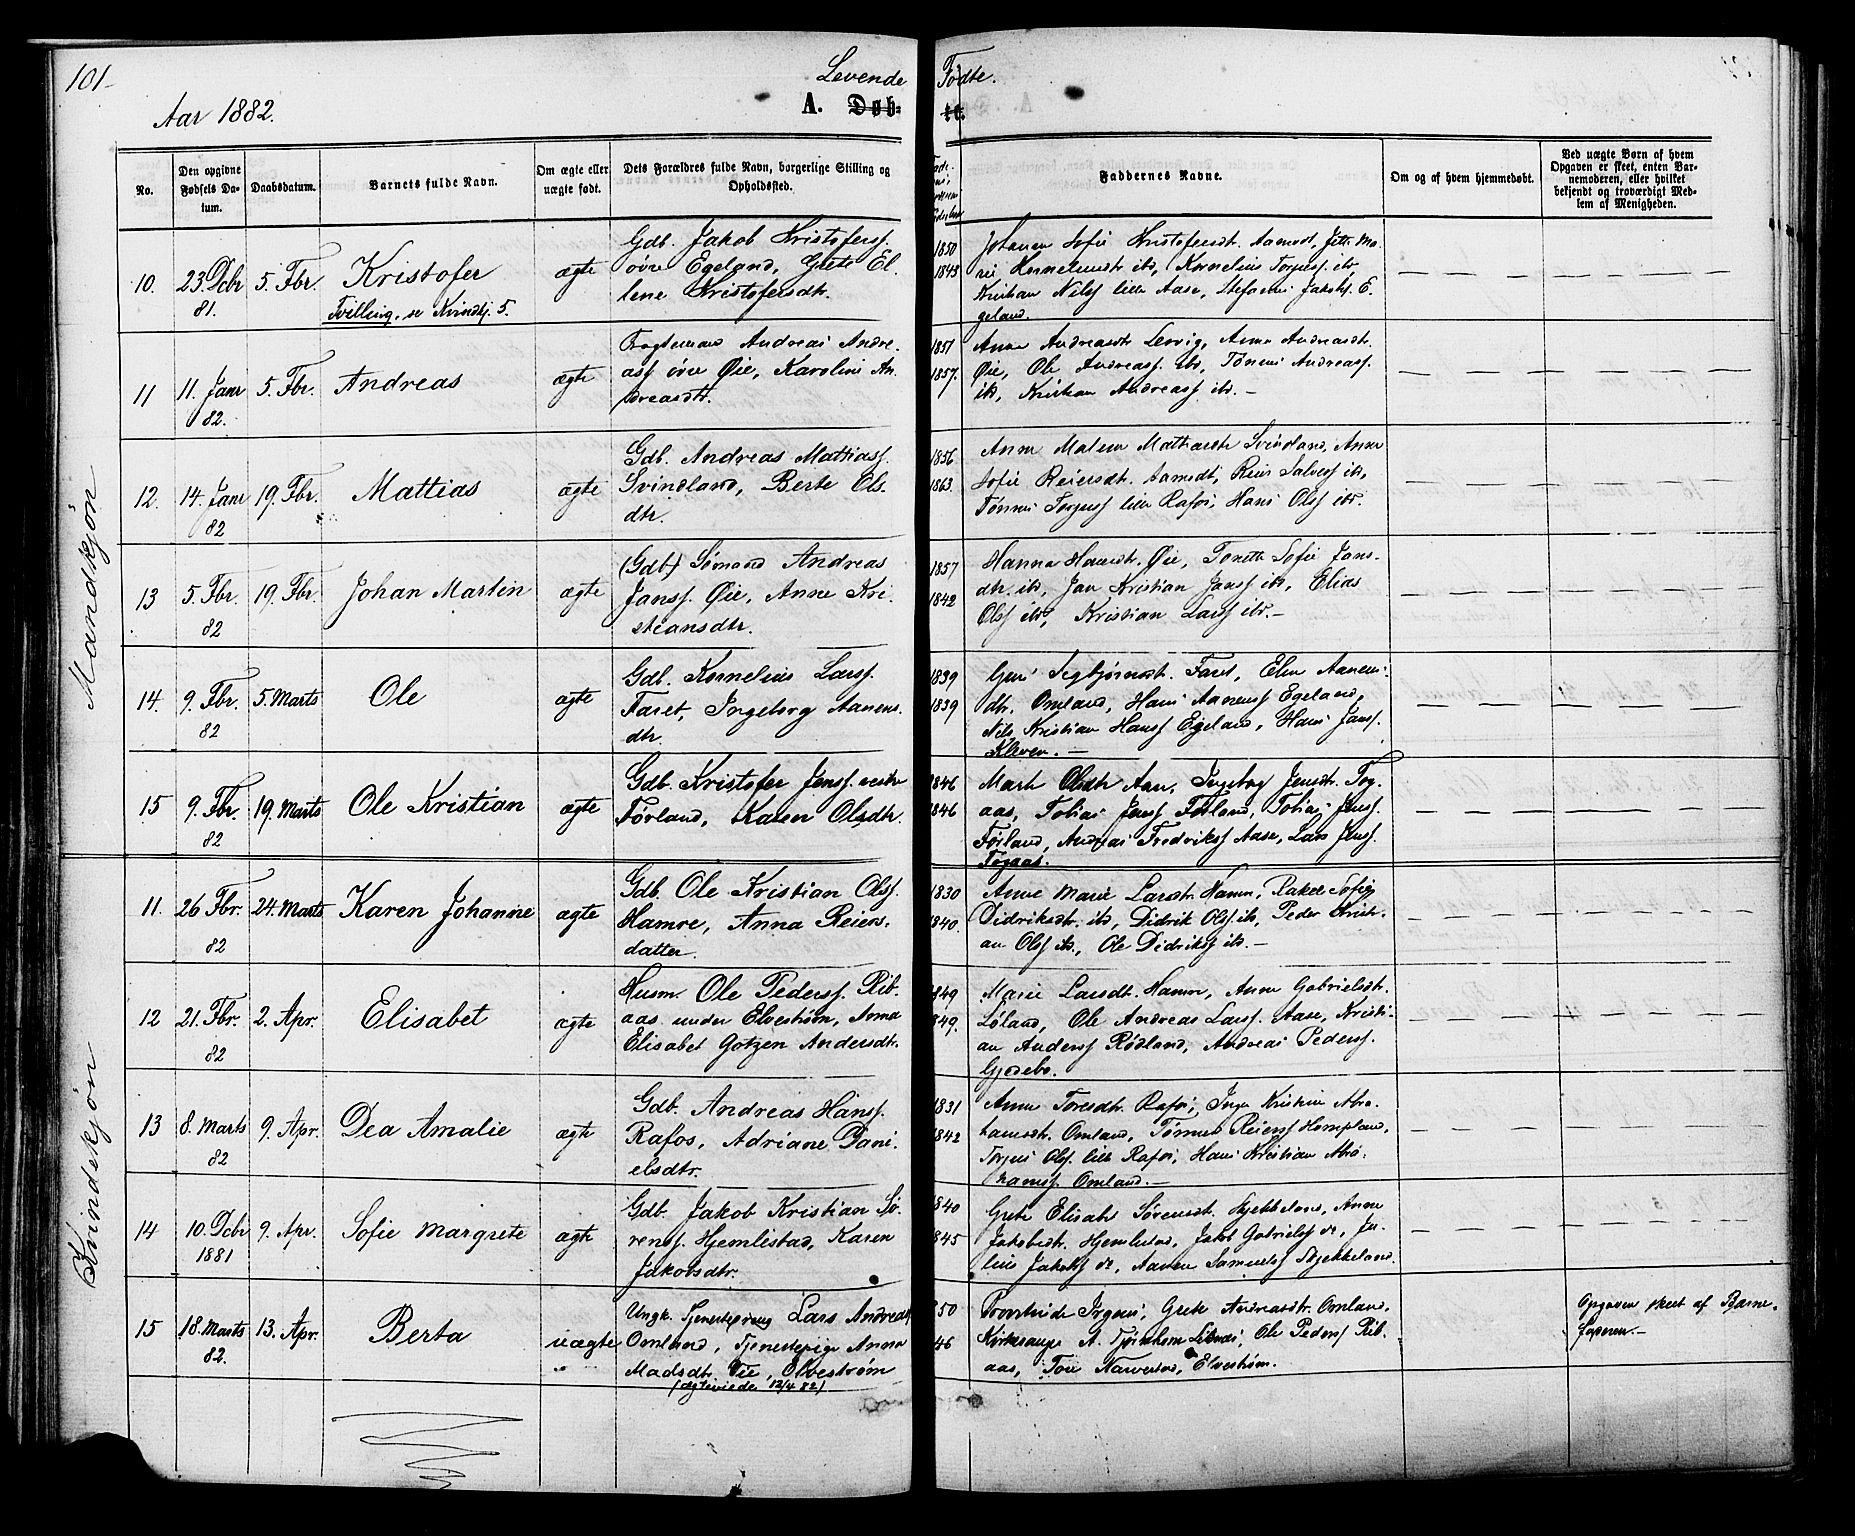 101
Levende Födte.
Aar 1882.
A. Døb-te.
No.
Den opgivne Fødsels Datum.
Daabsdatum.
Barnets fulde Navn.
Om ægte eller uægte født.
Dets Forældres fulde Navn, borgerlige Stilling og Opholdssted.
Faddernes Navne.
Om og af hvem hjemmedøbt.
Ved uægte Børn af hvem Opgaven er skeet, enten Barnemoderen, eller hvilket bekjendt og troværdigt Medlem af Menigheden.
Mandkjøn
10. 23. Dcbr 81. 5. Fbr. Kristofer
Tvilling, se Kvindkj. 5.
ægte
Gdb. Jakob Kristofersf.
øvre Egeland, Grete El-
lene Kristofersdtr.
1850
1843
Johanne Sofie Kristofersdt. Aamodt,
Kornelius Torjusf. ib,
Kristian Nilsf lille Aase, Stefanus Jakobsf. E-
geland.
11 11. Janr 82. 5. Fbr. Andreas
ægte
Andreas Andre-
asf øvre Øie, Karoline An-
dreasdtr.
1851
1857.
Anne Andreasdtr Lervig, Anne Andreasdt.
Øie, Ole Andreasf. ib, Tønnes Andreasf.
ib, Kristian Andreasf ib. —
12. 14. Janr 82 19. Fbr. Mattias
ægte
Gdb. Andreas Mattiasf.
Svindland, Berte Ols-
dtr.
1856
1863.
Anne Malene Mathiasdtr Svindland, Anne
Sofie Reiersdt. Aamodt, Reier Salvesf ib,
Tønnes Torjusf lille Rafos, Hans Olsf ib.
13 5. Fbr. 82 19. Fbr. Johan Martin
ægte
(Gdb.) Sømand Andreas
Jansf. Øie, Anne Kri-
stiansdtr.
1857
1842
Hanna Hansdt. Øie, Tonette Sofie Jans-
dtr. ib, Jan Kristian Jansf ib, Elias
Olsf ib, Kristian Larsf ib. —
14. 9. Fbr. 82 5. Marts Ole
ægte
Gdb. Kornelius Larsf.
Faret, Ingeborg Aanens-
dtr.
1839
1839
Faret, Elen Aanens-
dtr. Omland, Hans Aanensf Egeland,
Nils Kristian Hansf Egeland, Hans Jansf.
Kleven. —
15 9. Fbr. 82 19. Marts Ole Kristian
ægte
Gdb. Kristofer Jensf. vestre
Førland, Karen Olsdtr.
1846
1846
Marte Olsdtr Aase, Ingeborg Jensdt. Tog-
aas, Tobias Jensf Førland, Tobias Jensf.
Førland, Andreas Fredriksf Aase, Lars Jensf.
Togaas.
Kvindekjøn
11. 26 Fbr. 82 24. Marts Karen Johanne
ægte
Gdb. Ole Kristian Olsf.
Hamre, Anna Reiers-
datter.
1830
1840.
Anne Marie Larsdtr Hamre, Rakel Sofie
Didriksdtr. ib, Didrik Olsf. ib, Peder Kristi-
an Olsf ib., Ole Didriksf ib. —
12 21. Fbr. 82 2. Apr. Elisabet
ægte
Husm. Ole Pedersf. Rib-
aas under Elvestrøm, Anna
Elisabet Gotzen Andersdtr.
1849
1849.
Marie Larsdt. Hamre, Anne Gabrielsdt.
Løland, Ole Andreas Larsf. Aase, Kristi-
an Andersf Rødland, Andreas Pedersf.
Gjedebo.
13 8. Marts 82 9. Apr. Dea Amalie
ægte
Gdb. Andreas Hansf.
Rafos, Adriane Dani-
elsdtr.
1831
1842
Anne Toresdtr. Rafos, Inger Kristine Abra-
hamsdtr. Omland, Tønnes Reiersf Hompland,
Torjus Olsf. lille Rafos, Hans Kristian Abra-
hamsf. Omland. —
14 10. Dcbr 1881 9. Apr. Sofie Margrete
ægte
Gdb. Jakob Kristian Sø-
rensf. Hjemlestad, Karen
Jakobsdtr.
1840
1845
Grete Elisabt Sørensdt. Skjekkeland, Anne
Jakobsdt. Hjemlestad, Jakob Gabrielsf do, Ju-
lius Jakobsf do, Aanen Samuelsf Skjekkeland.
15 18. Marts 82. 13. Apr. Berta
uægte
Ungk. Tjenestedreng Lars Andreasf
Omland, Tjenestepige Anna
Madsdtr. Øie, Elvestrøm
(ægteviede 12/4 82)
50
46
Provstinde Irgens, Grete Andreasdtr. Omland,
Kirkesanger A. Tjørnhom Liknes, Ole Pedersf Rib-
aas, Tore Narvestad, Elvestrøm.
Opgaven skeet af Barne-
faderen. —